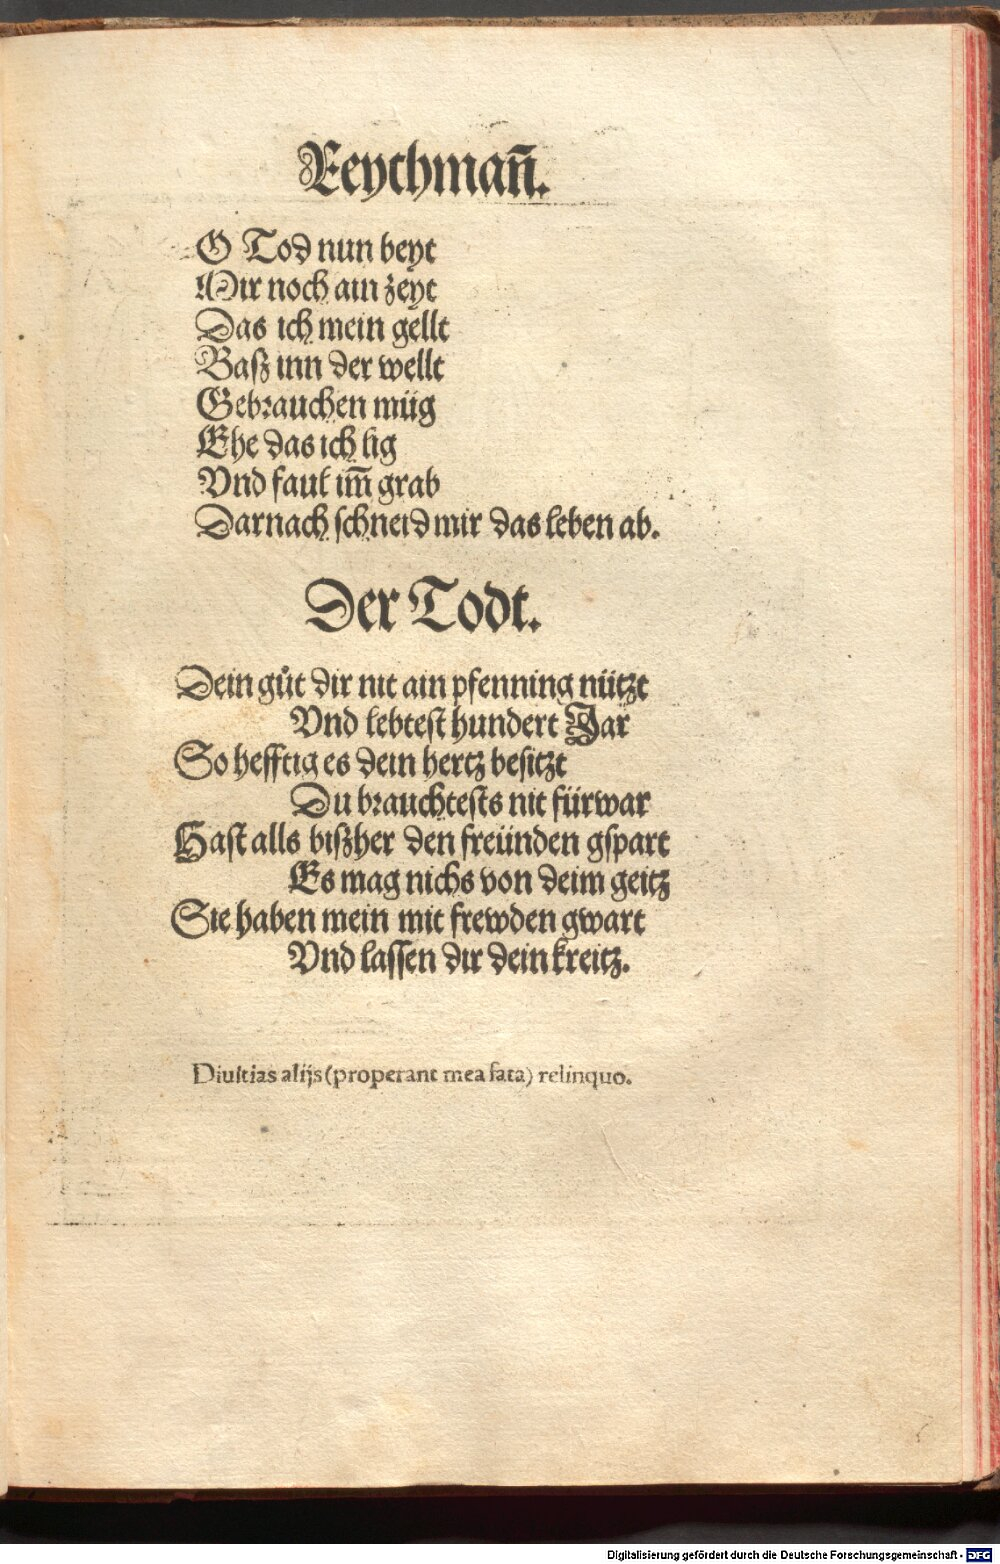 Reychman̄.
O Tod nun beyt
Mir noch ain zeyt
Das ich mein gellt
Baſz inn der wellt
Gebrauchen müg
Ehe das ich lig
Vnd faul im̄ grab
Darnach ſchneid mir das leben ab.
Der Todt.
Dein gůt dir nit ain pfenning nützt
Vnd lebteſt hundert Jar
So hefftig es dein hertz beſitzt
Du brauchteſts nit fürwar
Haſt alls biſzher den freünden gſpart
Es mag nichs von deim geitz
Sie haben mein mit frewden gwart
Vnd laſſen dir dein kreitz.
Diuitias alijs (properant mea fata) relinquo.
Digitalisierung gefördert durch die Deutsche Forschungsgemeinschaft - DFG